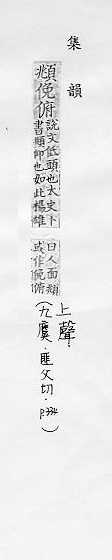 集韻
頫俛俯
說文低頭也太史卜
書頫卬也如此楊雄
曰人面頫
或作俛俯
上聲
(九麌·匪父切·P334)